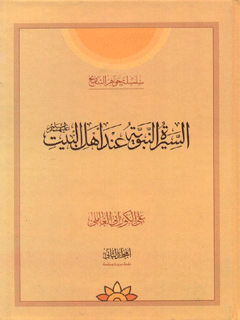 سلسلة جواهر التاريخ
السيرة النبوية عند أهل البيت عليهم السلام
علي الكوراني العاملي
المجلد الثاني